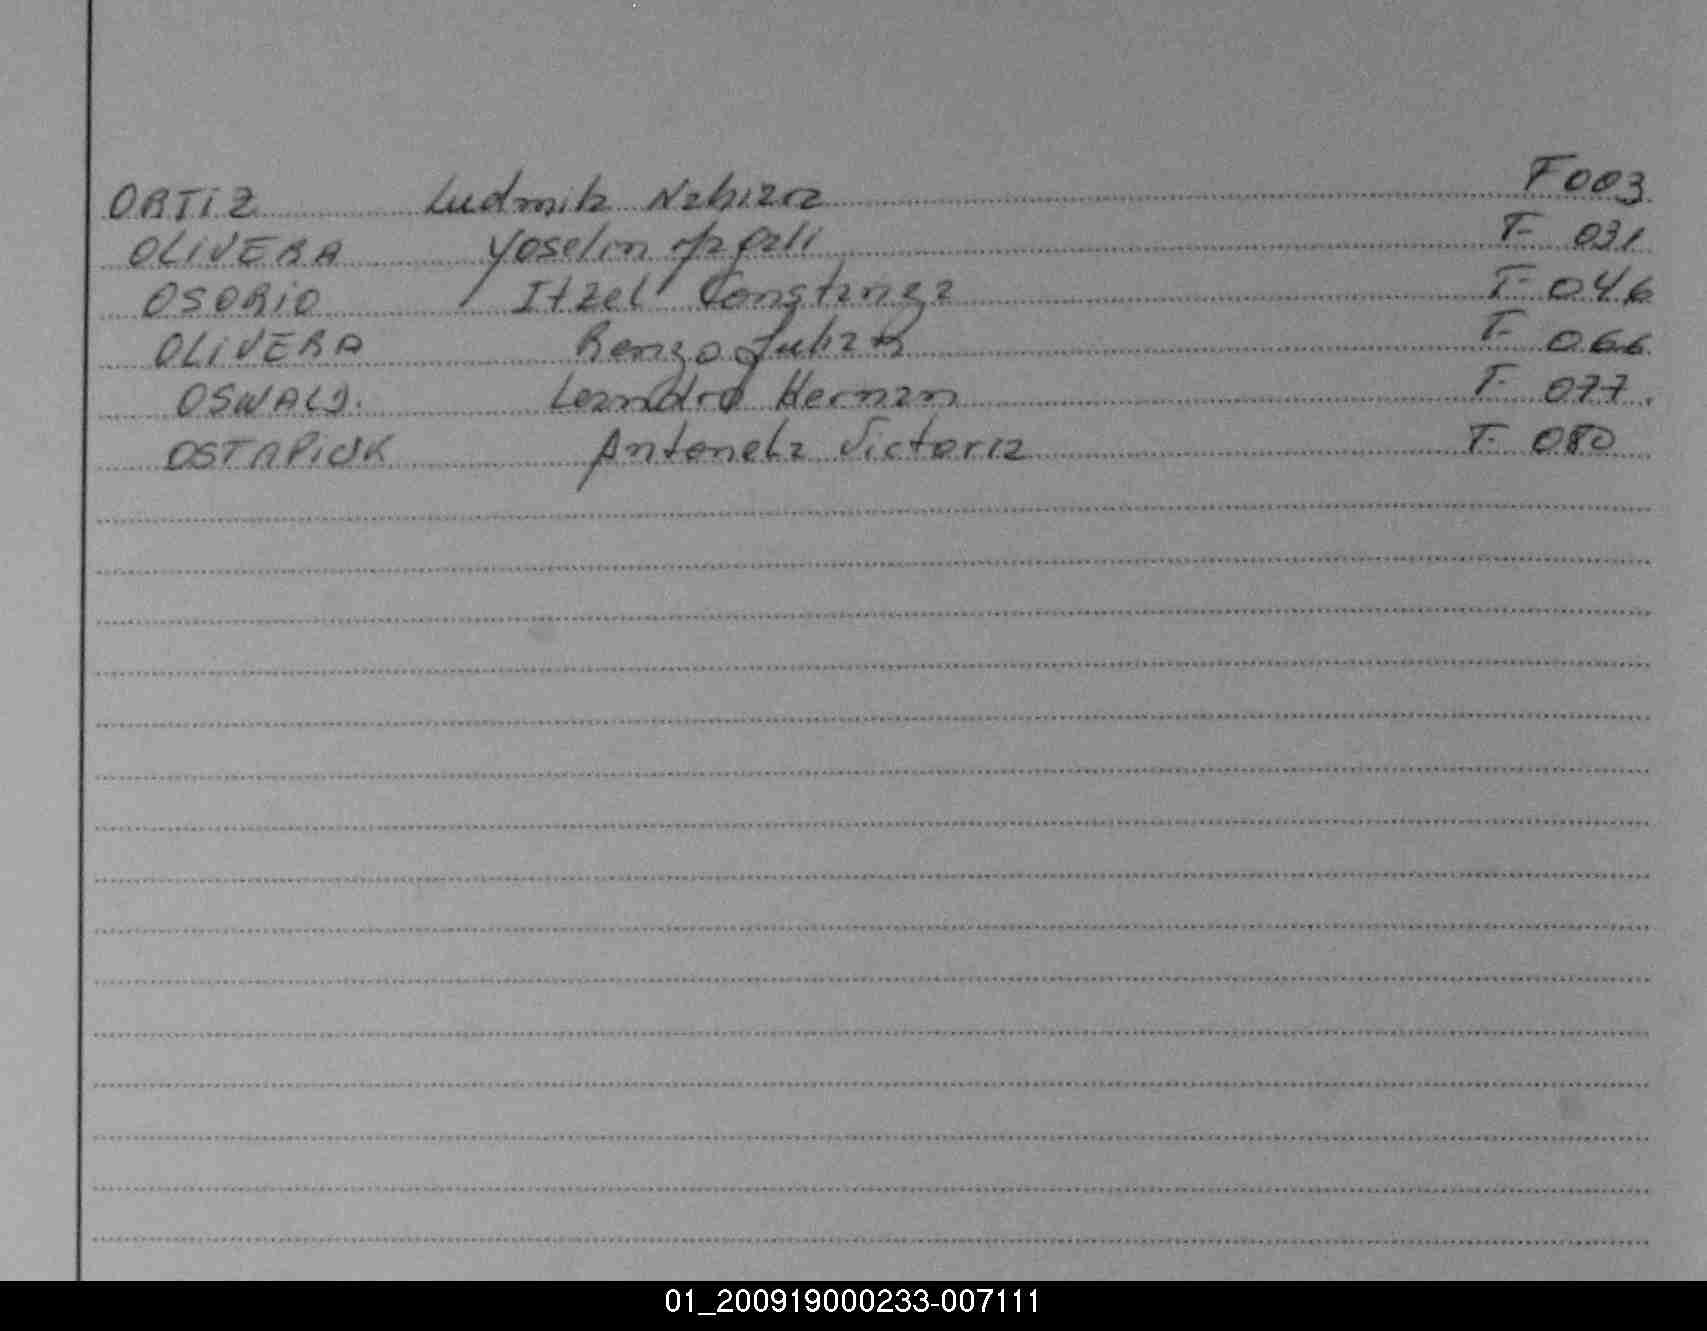 ORTIZ Ludmila Nahiara F003
OLIVERA Yoselin Magali F- 031
OSORIO Itzel Constanza F- 046
OLIVERA Renzo Julian F- 066
OSWALD. Leandro Hernan F- 077.
OSTAPIUK Antonela Victoria F- 080
01_200919000233-007111